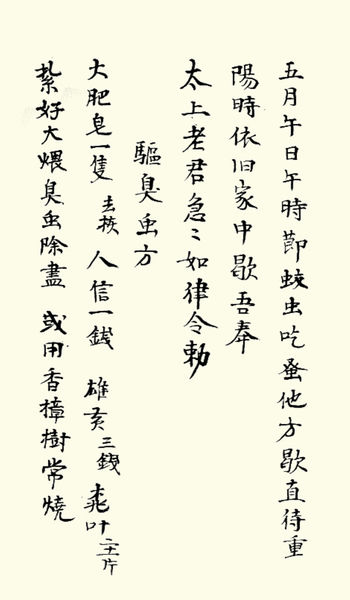 五月午日午時節蚊虫吃蚤他方歇直待重
陽時依旧家中歇吾奉
太上老君急〻如律令勅
驅臭虫方
大肥皂一隻 去核 人信一錢 雄黃三錢 桃叶片
紮好大煨臭虫除盡 或用香樟樹常燒